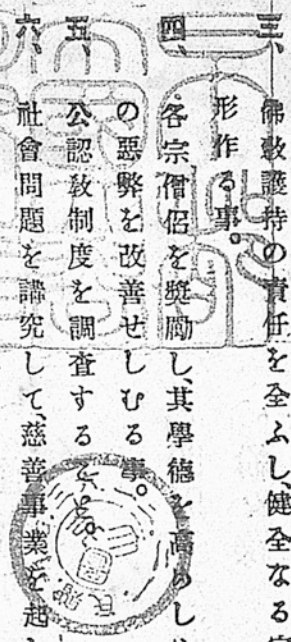 三、佛敎護持の責任を全ふし、健全なる
形作る事。
四、各宗僧侶を奬勵し、其學德を高めし
の惡弊を改善せしむる事。
五、公認敎制度を調査する事。
六、社會問題を講究して、慈善事業を起